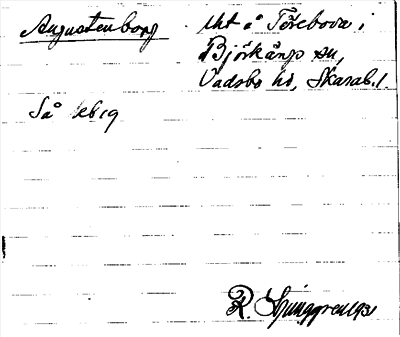 Augustenborg lht å Töreboda i
Björkängs sn,
Vadsbo hd, Skarab. l.
Så eb 19
R. Ljunggren 1931